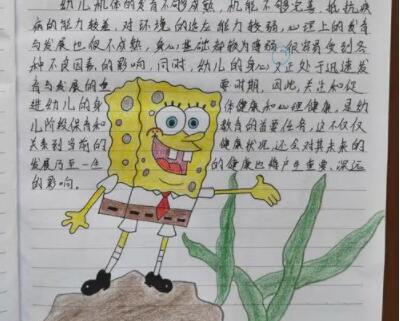 幼儿机体的发育不够成熟，机能不够完善，抵抗疾
病的能力较差，对环境的适应能力较弱，心理上的发育
与发展也很不成熟，身心基础都较为薄弱，很容易受到各
种不良因素的影响，同时，幼儿的身心又正处于迅速发
育与发展的重要时期，因此，关注和促
进幼儿的身体健康和心理健康，是幼
儿阶段保育和教育的首要任务，这不仅仅
关系到当前的健康状况，还会对其未来的
发展乃至一生的健康也将产生重要、深远
的影响。